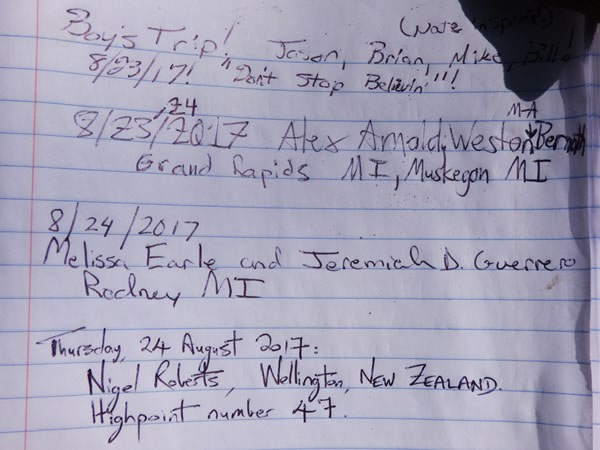 Boy's Trip! (Nate in spirit!)
8/23/17! Jason, Brian, Mike, Bill!
"Don't Stop Believin'"!!
,24 M-A
8/23/2017 Alex Arnold, Weston
Grand Rapids MI, Muskegon MI
8/24/2017
Melissa Earle and Jeremiah D. Guerrero
Rodney MI
Thursday, 24 August 2017:
Nigel Roberts, Wellington, NEW ZEALAND.
Highpoint number 47.